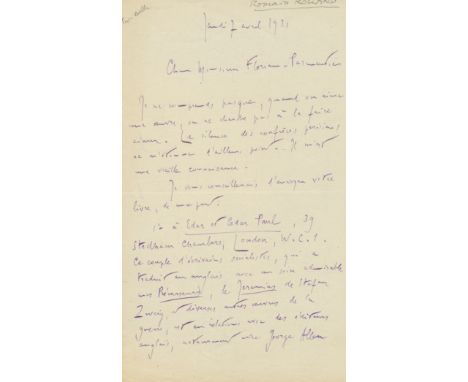 ROMAIN ROLLAND
Jeudi 7 avril 1921
Cher Monsieur Florian-Parmentier
Je ne comprends pas que, quand on aime
une œuvre, on ne cherche pas à la faire
aimer. Le silence des confrères parisiens
ne m'étonne d'ailleurs point. Il m'est
une vieille connaissance.
Je vous conseillerais d'envoyer votre
livre, de ma part.
1° à Eden et Cedar Paul, 39
Chambers, London, W.C.1.
Ce couple d'écrivains socialistes, qui a
traduit en anglais avec un soin admirable
mes Précurseurs, le Jeremias de Stefan
Zweig et diverses autres œuvres de la
guerre, est en relations avec des éditeurs
anglais, notamment avec George Allen